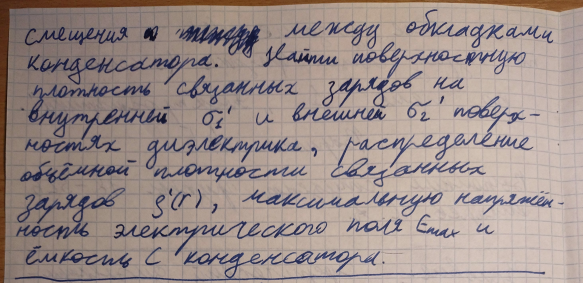 смещения между обкладками
конденсатора. Найти поверхностную
плотность связанных зарядов на
внутренней σ₁' и внешней σ₂' поверх-
ностях диэлектрика, распределение
объёмной плотности связанных
зарядов ρ'(r), максимальную напряжён-
ность электрического поля Emax и
ёмкость C конденсатора.